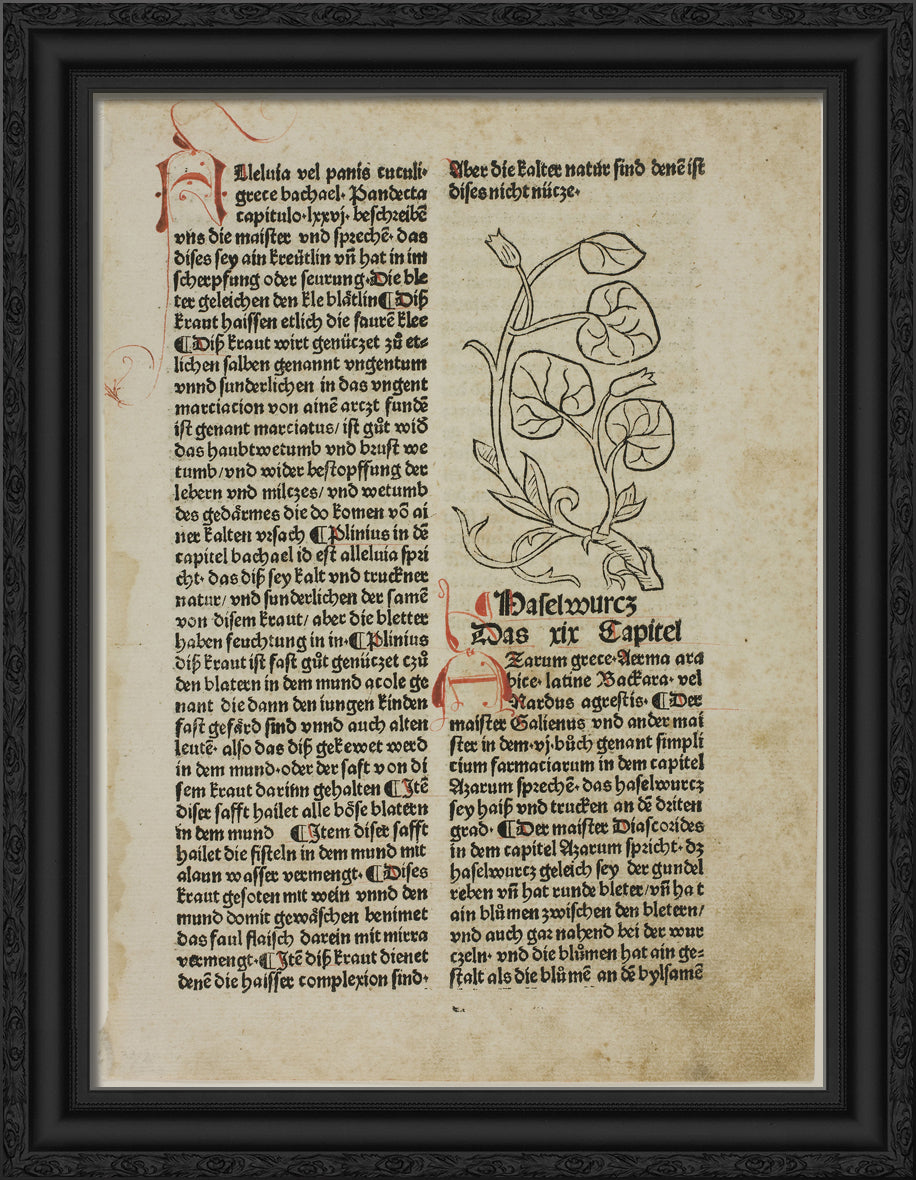 Alleluia vel panis cuculi·
grece bachael· Pandecta
capitulo·lxxvj· beschreibē
vns die maister vnd sprechē· das
dises sey ain kreütlin vñ hat in im
scherpfung oder seurung·Die ble
ter geleichen den kle blätlin¶Diß
kraut haissen etlich die saurē klee
¶Diß kraut wirt genüczet zů et⸗
lichen salben genannt vngentum
vnnd sunderlichen in das vngent
marciacion von ainē arczt fundē
ist genant marciatus/ ist gůt wid̄
das haubtwetumb vnd brust we
tumb/vnd wider bestopffung der
lebern vnd milczes/ vnd wetumb
des gedärmes die do komen vō ai
ner kalten vrsach ¶Plinius in dē
capitel bachael id est alleluia spri
cht· das diß sey kalt vnd truckner
natur/ vnd sunderlichen der samē
von disem kraut/ aber die bletter
haben feuchtung in in·¶Plinius
diß kraut ist fast gůt genüczet czů
den blatern in dem mund acole ge
nant die dann den iungen kinden
fast gefärd sind vnnd auch alten
leutē· also das diß gekewet werd
in dem mund·oder der saft von di
sem kraut darinn gehalten ¶Itē
diser safft hailet alle böse blatern
in dem mund ¶Item diser safft
hailet die fisteln in dem mund mit
alaun wasser vermengt·¶Dises
kraut gesoten mit wein vnnd den
mund domit gewäschen benimet
das faul flaisch darein mit mirra
vermengt·¶Itē diß kraut dienet
denē die haisser complexion sind·
Aber die kalter natur sind denē ist
dises nicht nücze·
¶Haselwurcz
Das xix Capitel
AZarum grece·Aerma ara
bice· latine Backara· vel
Nardus agrestis· ¶Der
maister Galienus vnd ander mai
ster in dem·vj·bůch genant simpli
cium farmaciarum in dem capitel
Azarum sprechē· das haselwurcz
sey haiß vnd trucken an dē driten
grad· ¶Der maister Diascorides
in dem capitel Azarum spricht· dz
haselwurcz geleich sey der gundel
reben vñ hat runde bleter/vñ hat
ain blůmen zwischen den bletern/
vnd auch gar nahend bei der wur
czeln· vnd die blůmen hat ain ge⸗
stalt als die blůmē an dē bylsamē